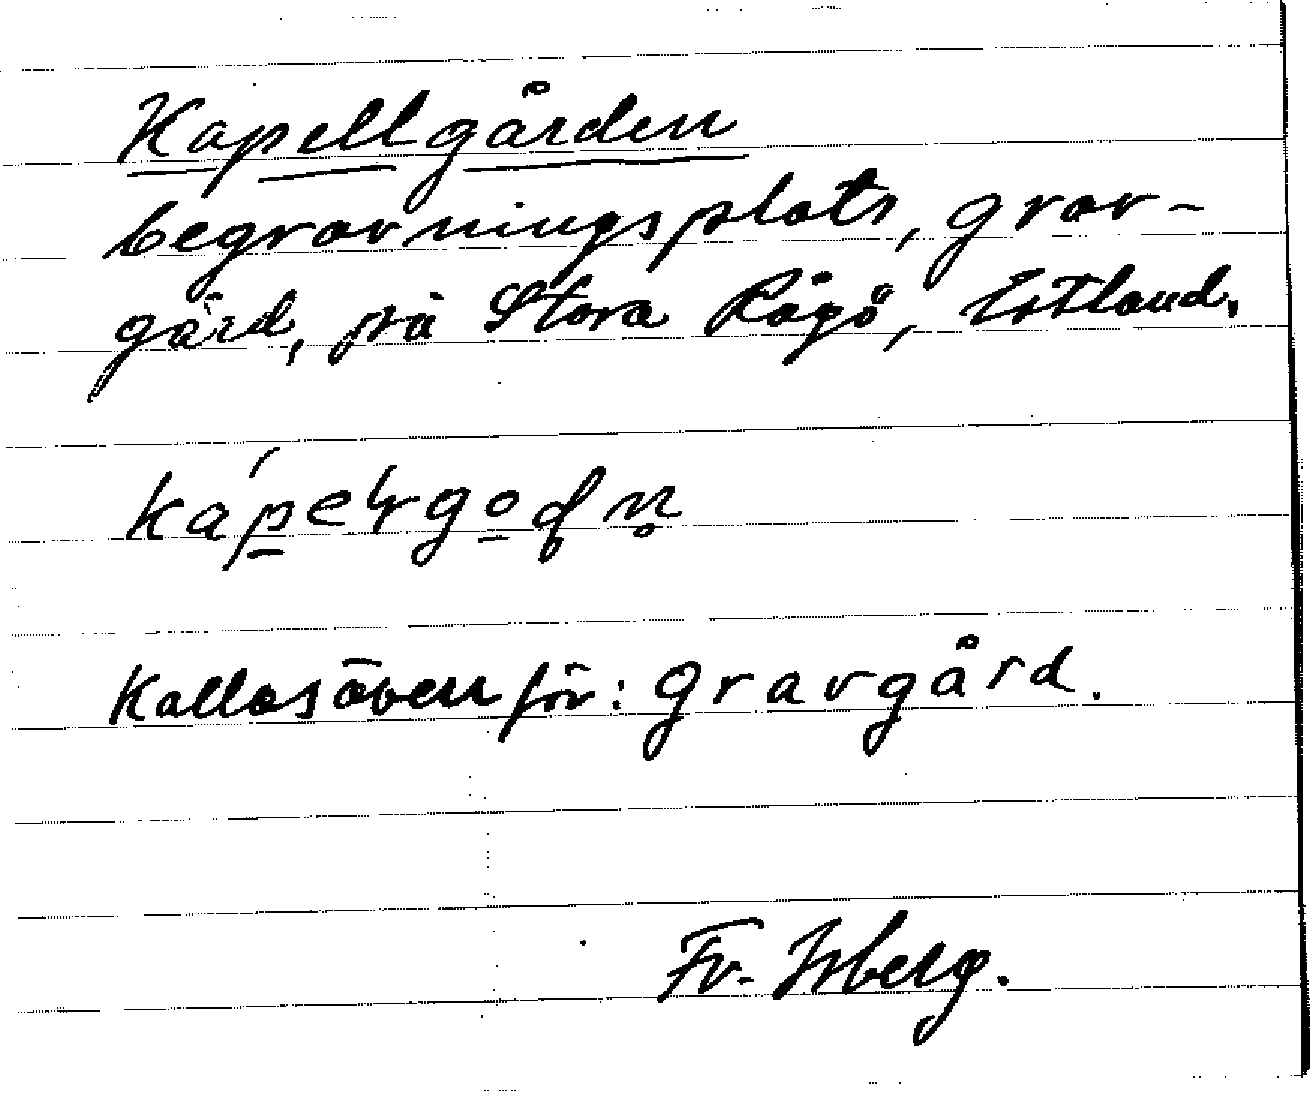 Kapellgården
begravningsplats, grav-
gård, på Stora Rågö, Estland.
Kallas även för: gravgård.
Fr. Isberg.